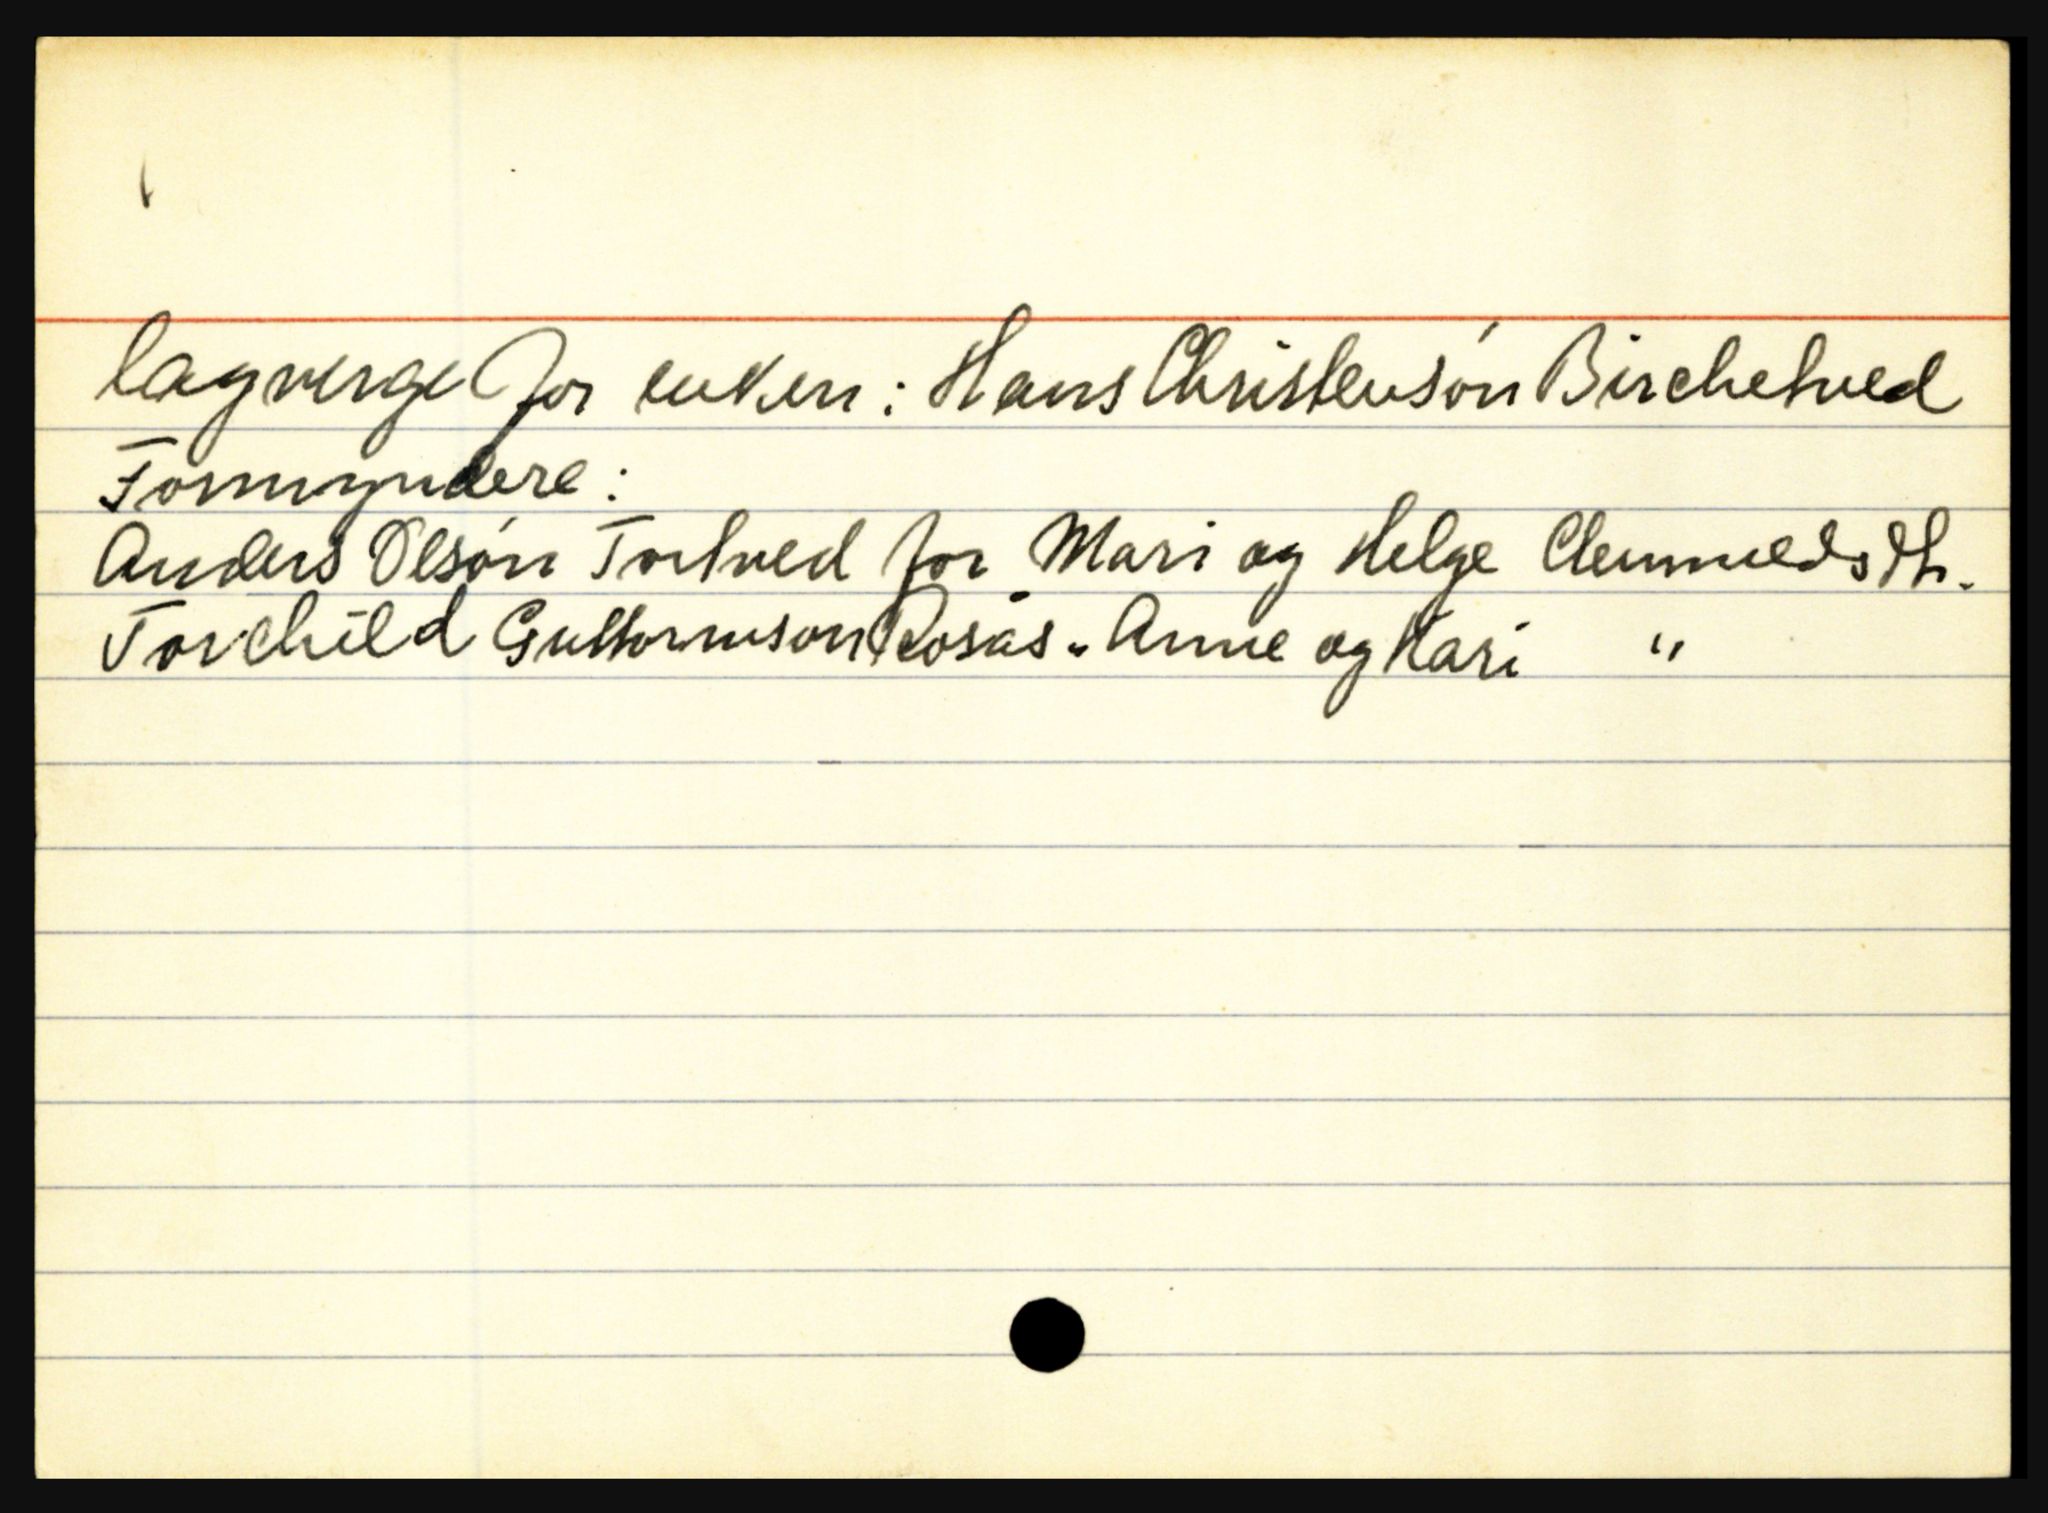 lagverge for enken: Hans Christensón Birchetved
Formyndere:
Anders Olsón Tortved for Mari og Helge Clemmedsdtr.
Torchild Guttormson Rosås " Anne og Kari "